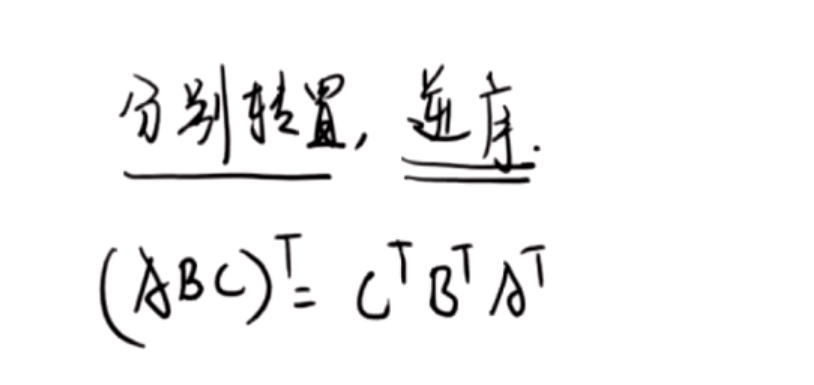 分别转置，逆序.
(ABC)ᵀ = CᵀBᵀAᵀ